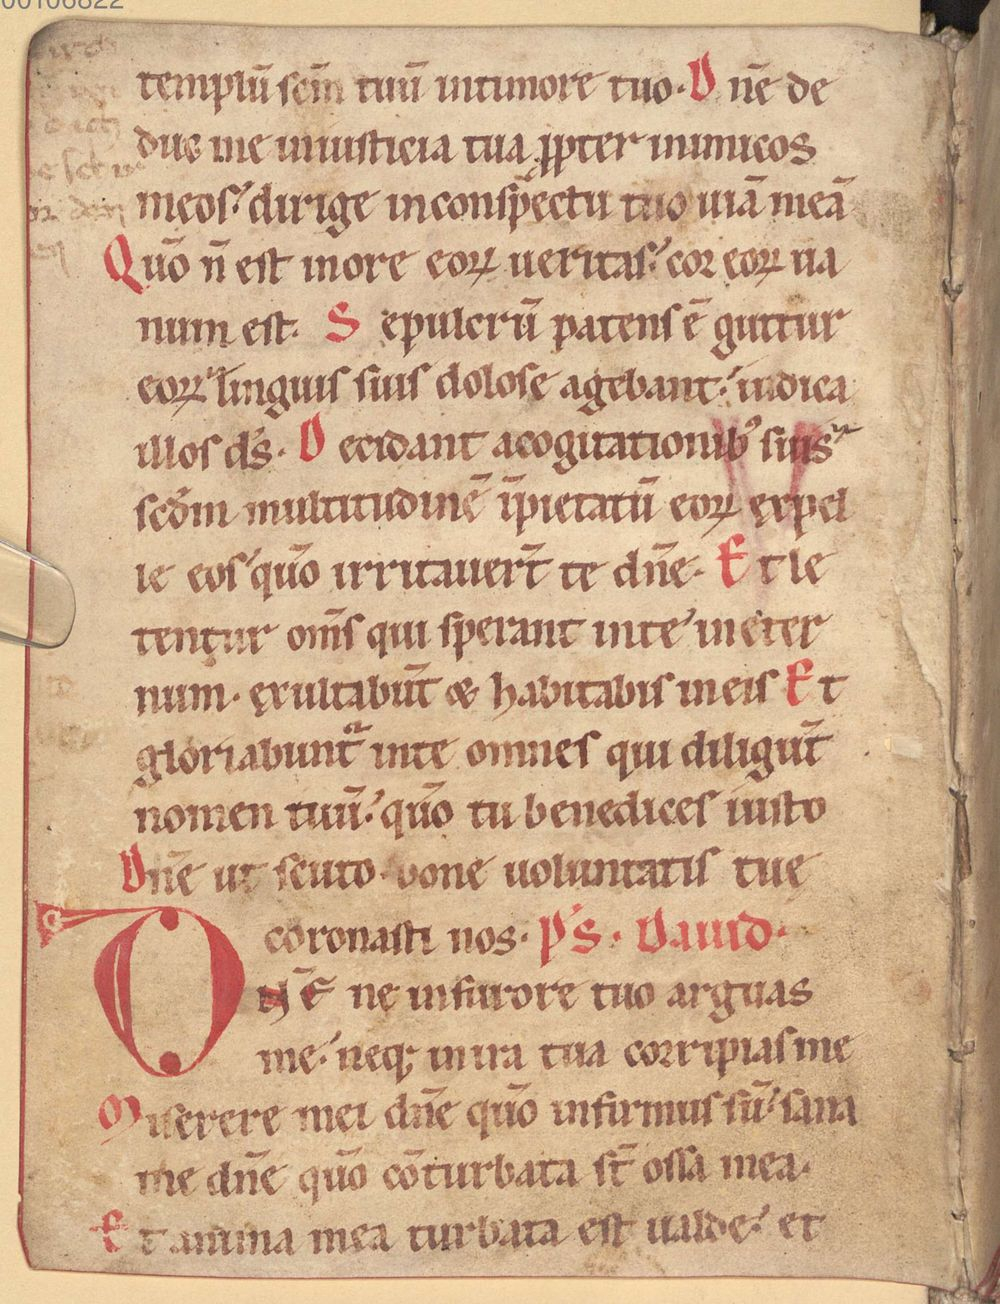 templū scm̄ tuū intimore tuo. Dn̄e de
duc me iniusticia tua ꝓpter inimicos
meos: dirige inconspectu tuo uiā meā
Quō n̄ est inore eoꝝ ueritas: cor eoꝝ ua
num est. Sepulcrū patens ē guttur
eoꝝ linguis suis dolose agebant: iudica
illos ds̄. Decidant acogitationib; suis
scd̄m multitudinē īpietatū eoꝝ expel
le eos quō irritauert̄ te dn̄e. Et le
tentur om̄s qui sperant inte ineter
num. exultabūt & habitabis ineis Et
gloriabunt᷑ inte omnes qui diligūt
nomen tuū: quō tu benedices iusto
Dn̄e ut scuto bone uoluntatis tue
coronasti nos. P̄s. Dauid.
DN̄E ne infurore tuo arguas
me: neq; inira tua corripias me
Miserere mei dn̄e quō infirmus sū: sana
me dn̄e quō cōturbata st̄ ossa mea.
Et anima mea turbata est ualde: et